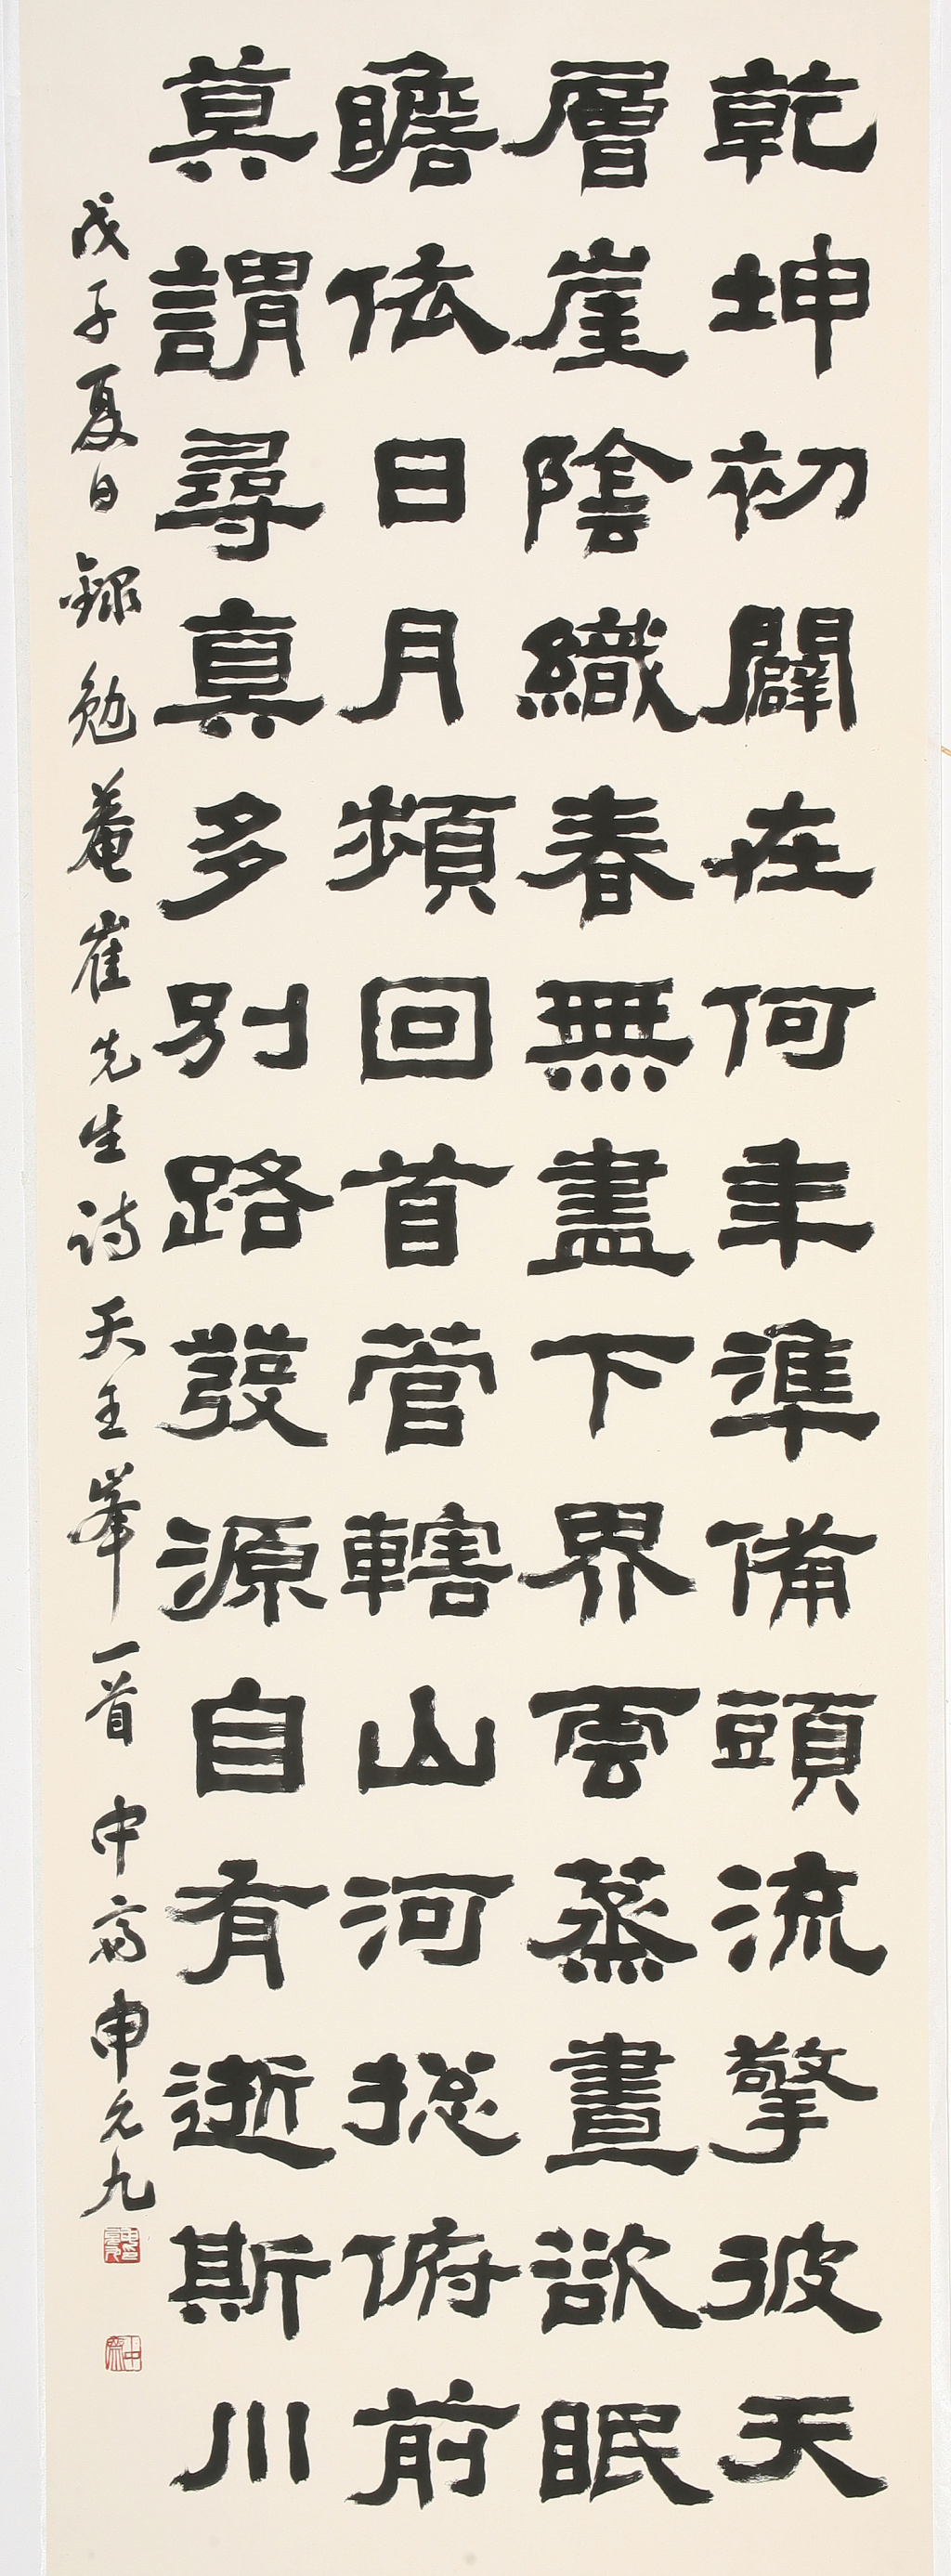 乾坤初闢在何年準備頭流擎彼天
層崖陰織春無盡下界雲蒸晝欲眠
瞻依日月頻回首管轄山河摠俯前
莫謂尋真多別路發源自有逝斯川
戊子夏日錄勉菴崔先生詩天王峯一首 中齋申元九